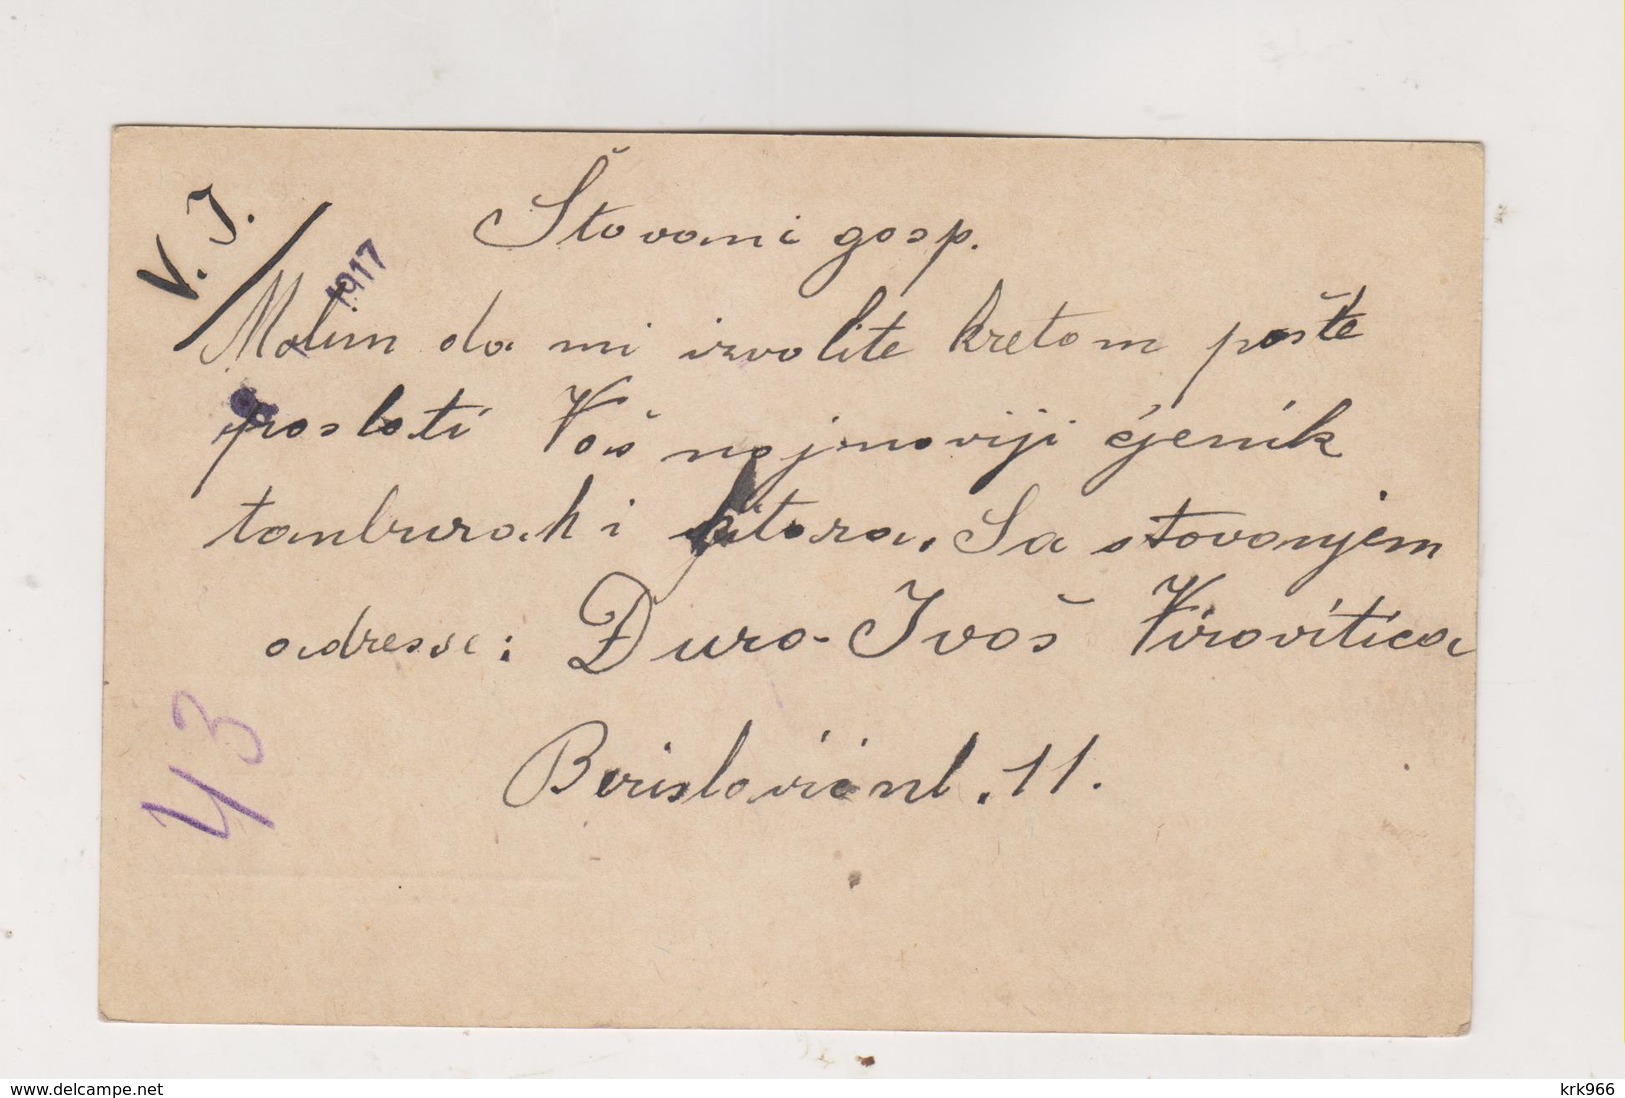 V. J.
1917
Štovani gosp.
Molim da mi izvolite kretom pošte
poslati Vaš najnoviji cjenik
tamburah i kitara. Sa štovanjem
adresse: Đuro Ivoš Virovitica
Berislavićeva ul. 11.
43
www.delcampe.net
krk966